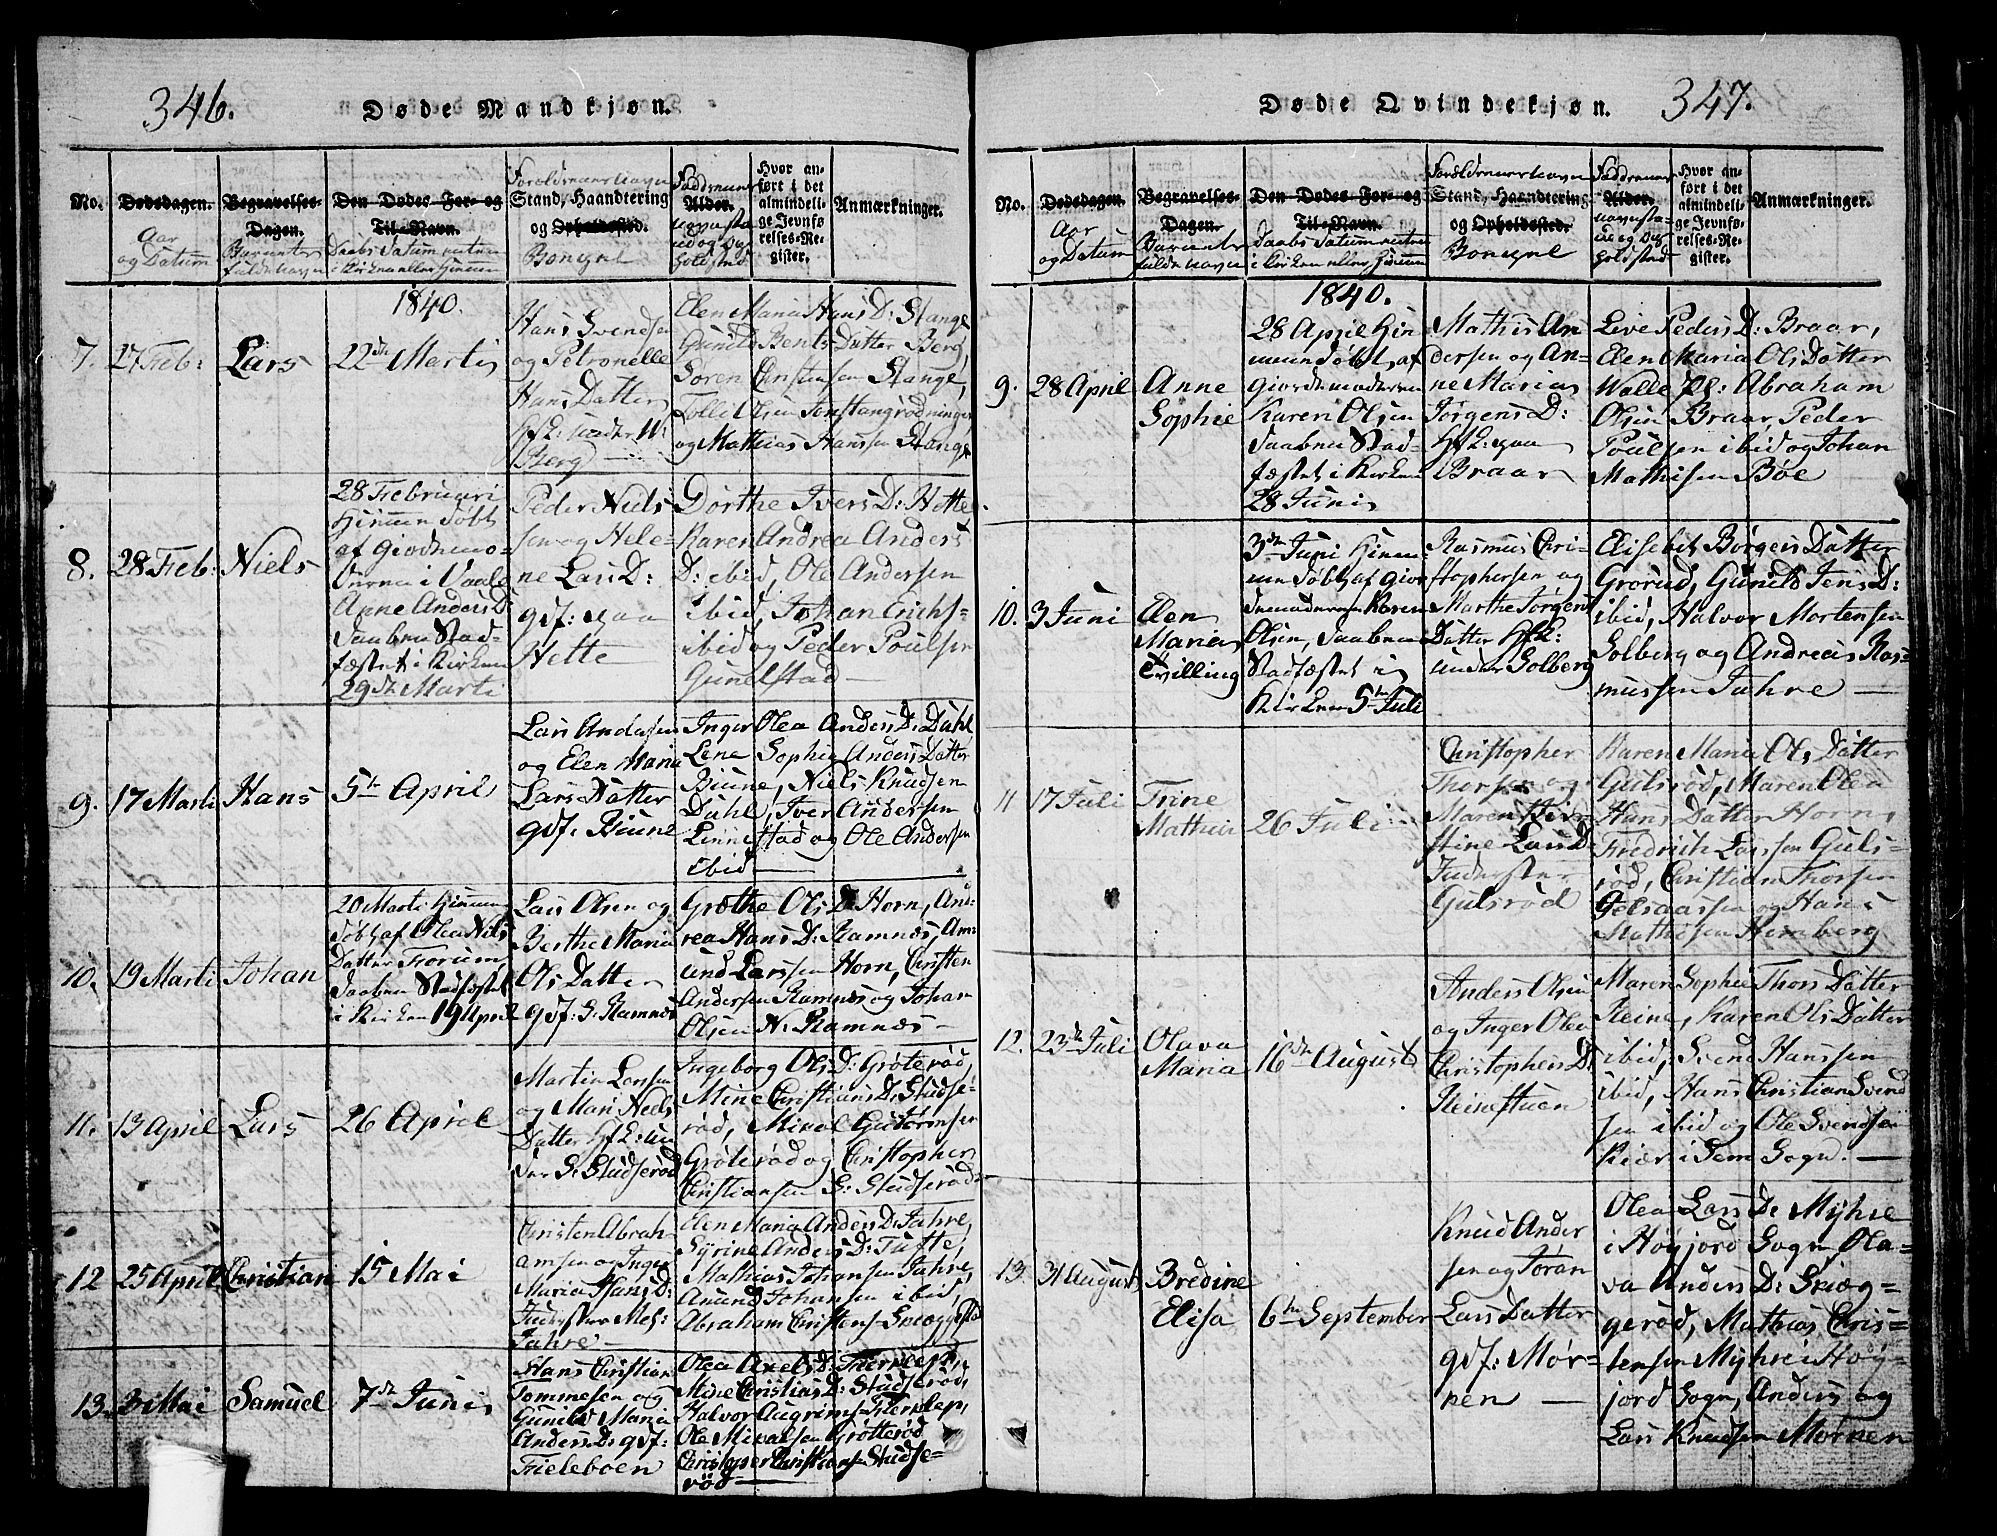 346.
Døde Mandkjøn.
No.
Dødsdagen.
Aar
og Datum
Begravelses-
Dagen.
Barnets
fulde Navn
Den Dødes For- og
Til-Navn.
Daabs Datum enten
i Kirken eller Hiemme
Forældrenes Navn
Stand, Haandtering
og Opholdsted.
Boeygd
Faddernes
Alder.
Hvor an-
ført i det
almindeli-
ge Jevnfø-
relses-Re-
gister.
Anmærkninger.
1840.
7.
27 Feb:
Lars
22de Marti
Hans Svendsen
og Petronelle
Hans Datter
Berg
Elen Maria Hans D: Stange
Gunild Bents Datter Berg,
Søren Christensen Stange,
og Mathias Hanssen Stange
8.
28 Feb:
Niels
28 Februari
Hiemme døbt
af Giordemo-
deren i Vaale
Anne Anders D:
Daaben Stad-
fæstet i Kirken
29de Marti
Peder Niels
sen og Hele-
ne Lars D:
gdf: paa
Hette
Dorthe Ivers D: Hette
Karen Andrea Anders
D: ibid, Ole Andersen
ibid, Johan Erichs-
ibid og Peder Poulsen
Gunelstad
9.
17 Marti
Hans
5te April
Lars Andersen
og Elen Maria
Lars Datter
gdf: Biune
Inger Olea Anders D: Dahl
Lene Sophie Anders Datter
Biune, Niels Knudsen
Dahl, Iver Andersen
Linnestad og Ole Andersen
Ibid
10.
19 Marti
Johan
20 Marti Hiemme
døbt af Olea Niels
Datter Forum
Daaben Stadfæstet
i Kirken 19 April
Lars Olsen og
Berthe Maria
Ols Datter
gdf: S: Ramnes
Græthe Ols D: Horn, And-
rea Hans D: Ramnes, Am-
und Larssen Horn, Christen
Andersen Ramnes og Johan
Olsen N: Ramnes
11.
13 April
Lars
26 April
Martin Larsen
og Mari Niels
Datter Hfl: un
der S: Studserød
Ingeborg Ols D: Grøterød,
Mine Christians D: Studse-
rød, Mikal Guttormsen
Grøterød og Christopher
Christiansen S: Studserød
12
25 April
Christian
15 Mai
Christen Abrah
amsen og Inger
Maria Hans D:
Jahre
Elen Maria Anders D: Jahre,
Syrine Anders D: Tufte,
Mathias Johansen Jahre,
Amund Johansen ibid,
Abraham Christens- Snæggestad
13.
3 Mai
Samuel
7de Juni
Hans Christian
Tommesen og
Guneld Maria
Anders D: gdf:
Fieleboen
Olea Axels D: Fierklep,
Mine Christians D: Studserød,
Halvor Augrims- Fierklep,
Ole Mikalsen Grøtterød
Christopher Christians- Studse-
rød
347.
Døde Qvindekjøn.
No.
Dødsdagen.
Aar
og Datum
Begravelses-
Dagen.
Barnets
fulde Navn
Den Dødes For- og
Til-Navn.
Daabs Datum enten
i Kirken eller Hiemme
Forældrenes Navn
Stand, Haandtering
og Opholdsted.
Boeygd
Faddernes
Alder.
Hvor an-
ført i det
almindeli-
ge Jevnfø-
relses-Re-
gister.
Anmærkninger.
1840.
9.
28 April
Anne
Sophie
28 April Hiem
men døbt af
Giordemoderen
Karen Olsen
Daaben Stad-
fæstet i Kirken
28 Juni
Mathis An
dersen og An-
ne Maria
Jørgens D:
Hfl: paa
Braar
Live Peders D: Braar,
Elen Maria Ols Datter
Walle Pl: Abraham
Olsen Braar, Peder
Poulsen ibid og Johan
Mathisen Bøe
10.
3 Juni
Elen
Maria
Tvilling
3de Juni Hiem
me døbt af Gior
demoderen Karen
Olsen, Daaben
Stadfæstet i
Kirken 5te Juli
Rasmus Chri-
stophersen og
Marthe Jørgens
Datter Hfl:
under Solberg
Elisebet Børgers Datter
Grorud, Gunild Jens D:
ibid, Halvor Mortensen
Solberg og Andreas Ras-
mussen Jahre
11
17 Juli
Trine
Mathea
26 Juli
Christopher
Thorsen og
Maren Kir-
stine Lars D:
Inderster
Gulsrød
Karen Maria Ols Datter
Gulsrød, Maren Olea
Hans Datter Horn,
Fredrich Larssen Guls-
rød, Christian Thorsen
Gelsaassen og Hans
Mathisen Himberg
12.
23de Juli
Olava
Maria
16de August
Anders Olsen
og Inger Olea
Christophers D:
Reinestuen
Maren Sophie Thors Datter
Reine, Karen Ols Datter
ibid, Svend Hanssen
ibid, Hans Christian Svend
sen ibid og Ole Svendsen
Kiær i Sem Sogn.
13.
31 August
Bredine
Elisa
6te September
Knud Ander
sen og Toran
Lars Datter
gdf: Mør-
ken
Olea Lars D: Myhre
i Høyjord Sogn, Ola-
va Anders D: Skiæg-
gerød, Mathias Chris-
tensen Myhre i Høy-
jord Sogn, Anders og
Lars Knudsen Mørken